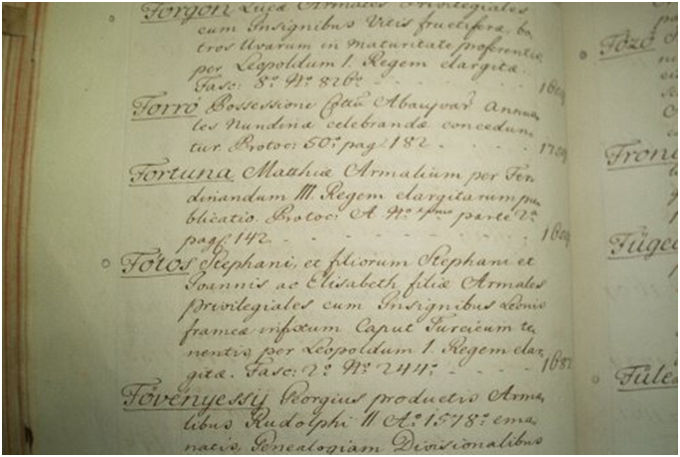 Forgon Lucæ Armales Privilegiales
cum Insignibus Vitis fructiferæ, bo,
tros Uvarum in maturitate proferentis,
per Leopoldum I. Regem elargitæ.
Fasc: 8º Nº 826º
Forró Possessioni Cottũ Abaujvar Annua,
les Nundinæ celebrandæ concedun,
tur. Protoc: 50º pag 182.
Fortuna Matthiæ Armalium per Fer,
dinandum III. Regem elargitarum pu,
blicatio. Protoc: A. Nº parte 2ª
pag. 142
Fotos Stephani, et filiorum Stephani et
Joannis ac Elisabeth filiæ Armales
Privilegiales cum Insignibus Leonis
frameæ infixum Caput Turcicum te,
nentis per Leopoldum I. Regem elar,
gitæ. Fasc: 2º Nº 244º
Fövenyessy Georgius productis Arma,
libus Rudolphi II Aº 1578º ema,
natis, Genealogiam Divisionalibus
Fozó
Füged
Füle